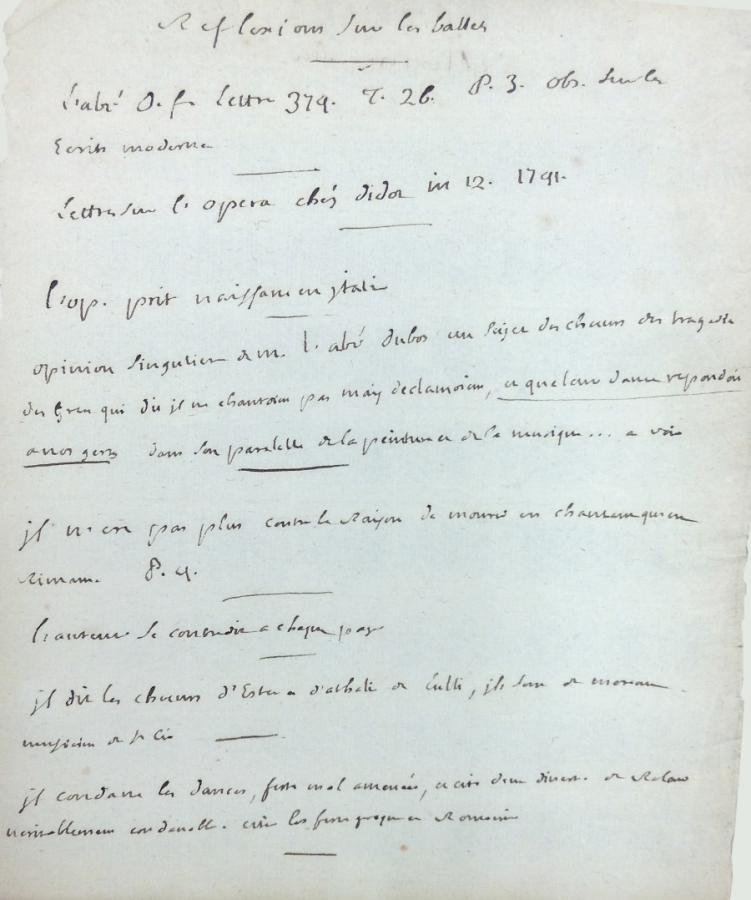 Reflexions sur les ballets
L'abé D. f. Lettre 379. T. 26. P. 3. obs. sur les
Ecrits moderne
Lettres sur l'opera chés didot in 12. 1741.
l'op. prit naissance en jtalie
opinion singuliere de m. l'abé dubos au sujet des choeurs des tragedie
des grecs qui dit jls ne chantoient pas mais declamoient, et que leur dance repondoit
a nos gestes dans son paralelle de la peinture et de la musique... a voir
jl n'est pas plus contre la Raison de mourir en chantant qu'en
Rimant. P. 4.
l'auteur se contredit a chaque page
jl dit les choeurs d'Ester et d'athalie de Lulli, jls sont de moreau
musicien de st Cir
jl condamne les dances, fetes mal amenées, et cite deux divert. de Roland
veritablement condanable. cite les fetes greque et Romaine